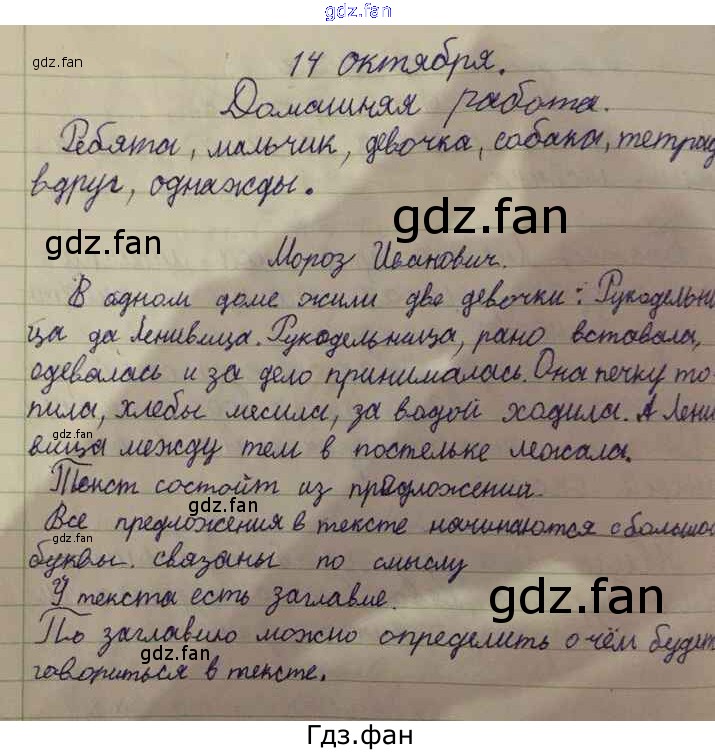 gdz.fan
14 октября.
gdz.fan gdz.fan
Домашняя работа.
Ребята, мальчик, девочка, собака, тетрад
вдруг, однажды.
gdz.fan
gdz.fan
Мороз Иванович.
В одном доме жили две девочки: Рукодельни
ца да Ленивица. Рукодельница, рано вставала,
одевалась и за дело принималась. Она печку то
пила, хлебы месила, за водой ходила. А Лени
gdz.fan
вица между тем в постельке лежала.
Текст состойт из предложений.
gdz.fan
Все предложения в тексте начинаются с большой
gdz.fan
буквы. связаны по смыслу
У текста есть заглавие.
gdz.fan
По заглавию можно определить о чём будет
gdz.fan gdz.fan
говориться в тексте.
Гдз.фан